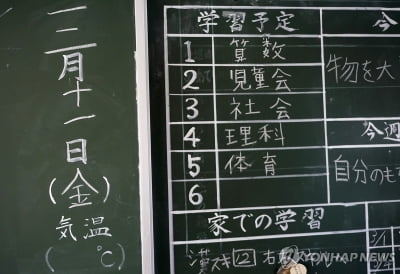 三月十一日(金)
気温
( ℃)
学習予定
1 算数
2 児童会
3 社会
4 理科
5 体育
6
家での学習
漢スキ 12 右
今
物を大
今週
自分のも
YONHAP NEWS